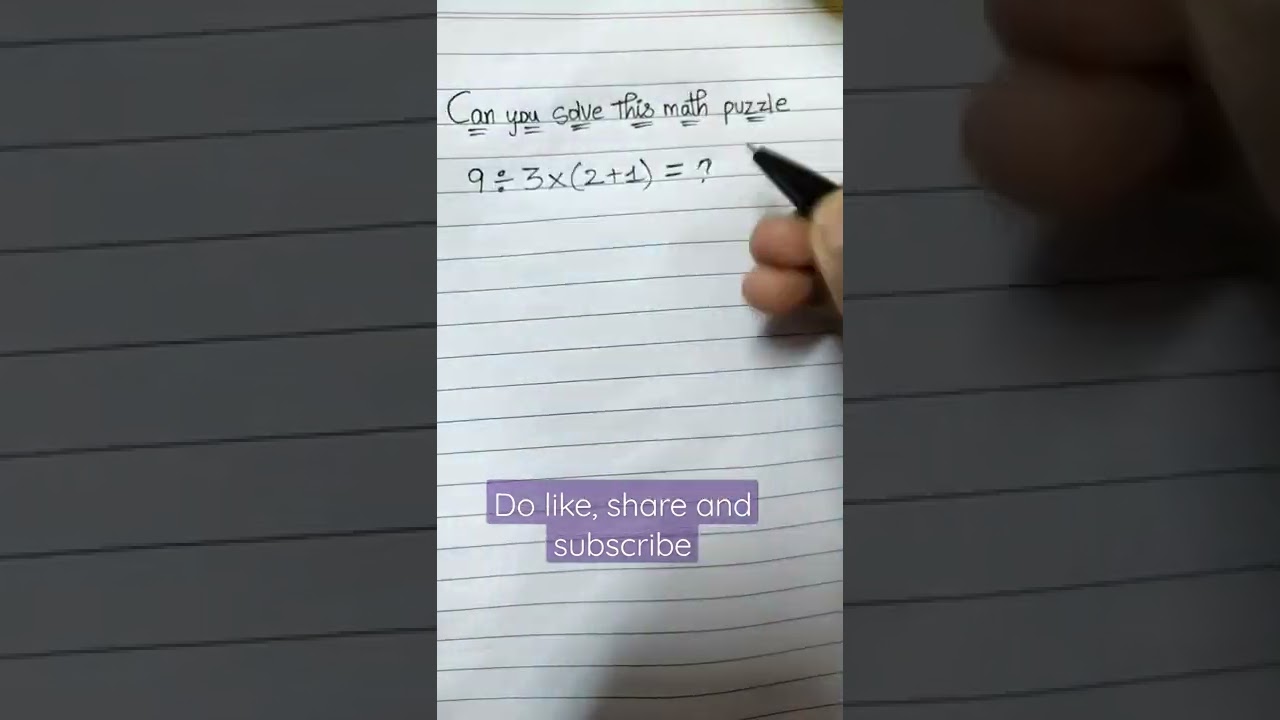 Can you solve this math puzzle
9÷3×(2+1) = ?
Do like, share and
subscribe